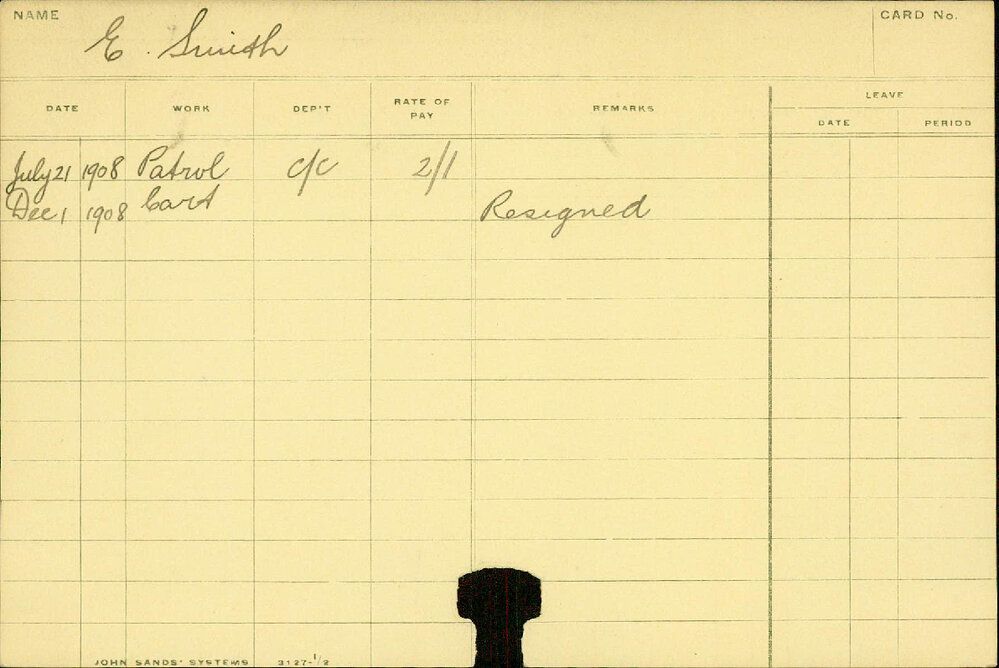 NAME CARD No.
E. Smith
DATE WORK DEP'T RATE OF PAY REMARKS LEAVE
DATE PERIOD
July 21 1908 Patrol c/c 2/1
Dec 1 1908 Cart Resigned
JOHN SANDS' SYSTEMS 3127-1/2